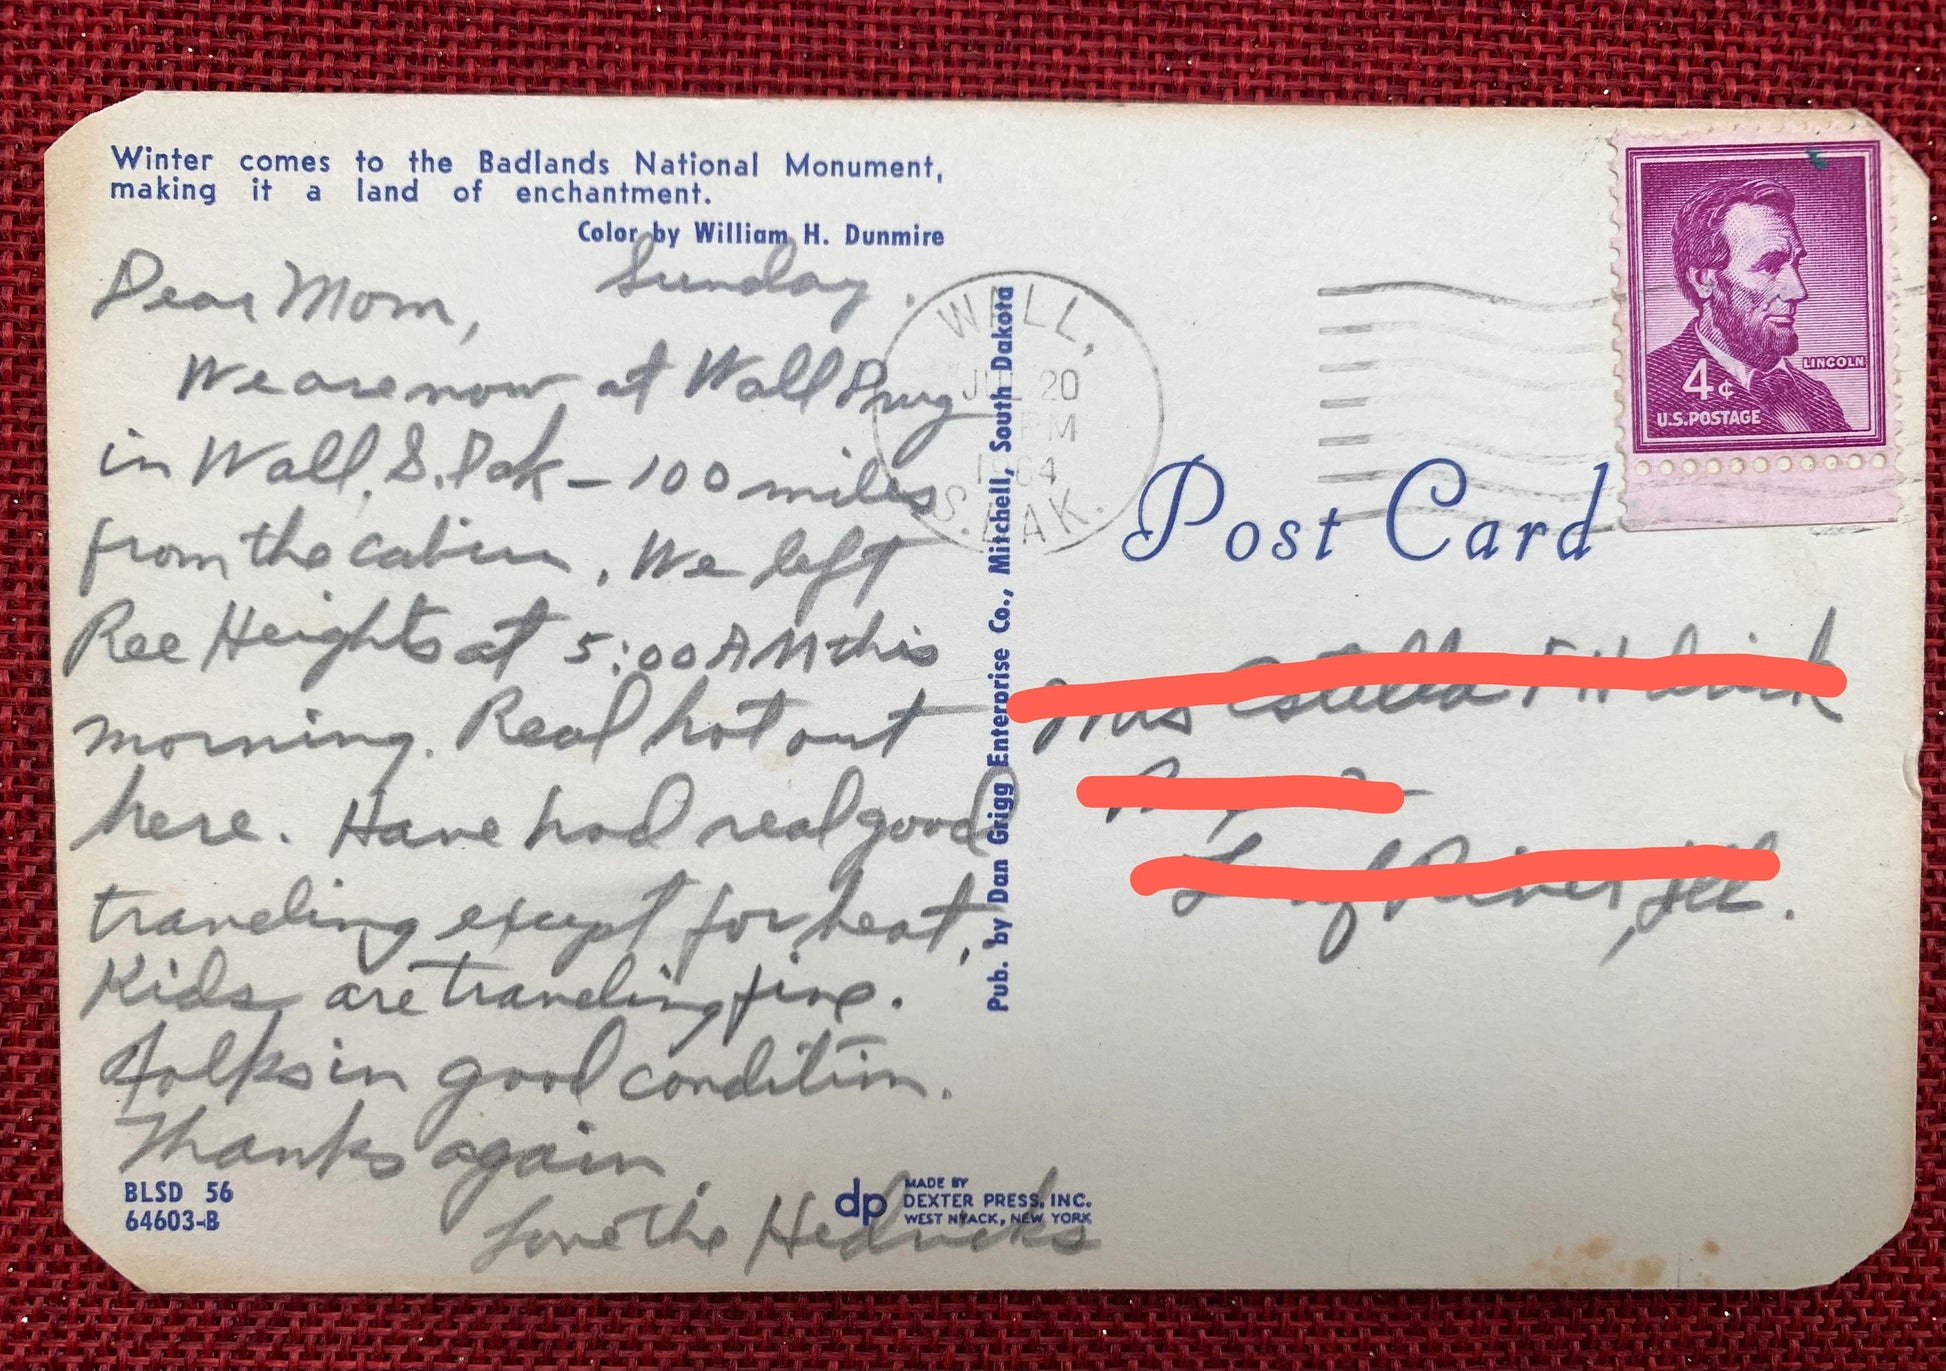 Winter comes to the Badlands National Monument,
making it a land of enchantment.
Color by William H. Dunmire
Sunday.
Dear Mom,
We are now at Wall Drug
in Wall, S. Dak - 100 miles
from the cabin. We left
Ree Heights at 5:00 AM this
morning. Real hot out
here. Have had real good
traveling except for heat,
Kids are traveling fine.
Folks in good condition.
Thanks again,
Love The Hedricks
BLSD 56
64603-B
dp MADE BY
DEXTER PRESS, INC.
WEST NYACK, NEW YORK
Pub. by Dan Grigg Enterprise Co., Mitchell, South Dakota
WALL,
JUL 20
PM
1964
S. DAK.
LINCOLN
4¢
U.S. POSTAGE
Post Card